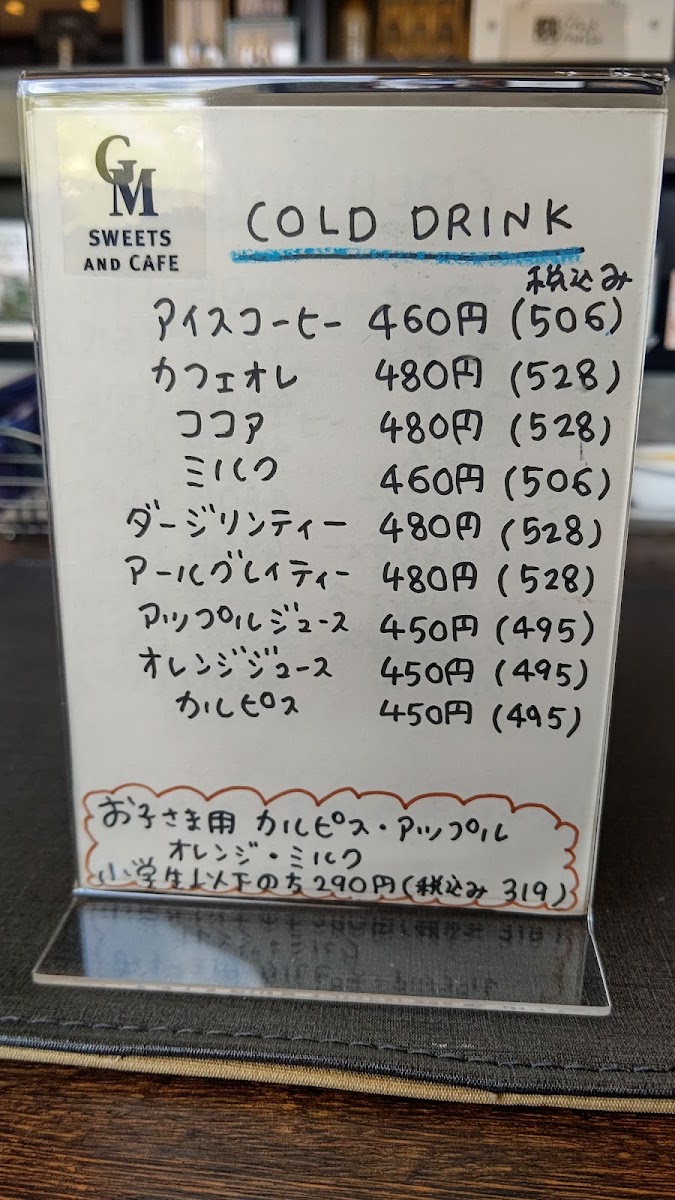 GM
SWEETS
AND CAFE
COLD DRINK
税込み
アイスコーヒー 460円 (506)
カフェオレ 480円 (528)
ココア 480円 (528)
ミルク 460円 (506)
ダージリンティー 480円 (528)
アールグレイティー 480円 (528)
アップルジュース 450円 (495)
オレンジジュース 450円 (495)
カルピス 450円 (495)
お子さま用 カルピス・アップル
オレンジ・ミルク
小学生以下のち 290円(税込み 319)